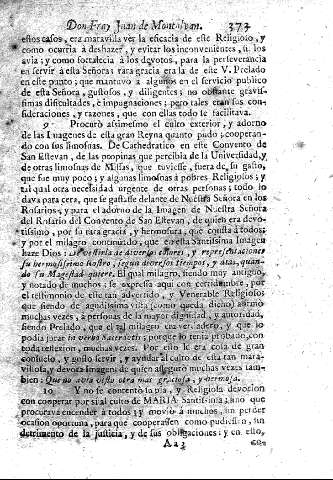 Don Fray Juan de Montalvan. 373
estos casos, era maravilla ver la eficacia de este Religioso, y
como ocurria à deshazer, y evitar los inconvenientes, si los
avia; y como fortalecia à los devotos, para la perseverancia
en servir à esta Señora: rara gracia era la de este V. Prelado
en este punto; que mantuvo à algunos en el servicio publico
de esta Señora, gustosos, y diligentes; no obstante gravis-
simas dificultades, e impugnaciones; pero tales eran sus con-
sideraciones, y razones, que con ellas todo se facilitava.
9 Procurò assimesmo el culto exterior, y adorno
de las Imagenes de esta gran Reyna quanto pudo; cooperan-
do con sus limosnas. De Cathedratico en este Convento de
San Estevan, de las propinas que percibia de la Universidad, y
de otras limosnas de Missas, que tuviesse, fuera de su gasto,
que fue muy poco; y algunas limosnas à pobres Religiosos; y
tal qual otra necessidad urgente de otras personas; todo lo
dava para cera, que se gastasse delante de Nuestra Señora en los
Rosarios; y para el adorno de la Imagen de Nuestra Señora
del Rosario del Convento de San Estevan, de quien era devo-
tissimo, por su rara gracia, y hermosura, que consta à todos;
y por el milagro continuado, que en esta Santissima Imagen
haze Dios: De vestirla de diversos colores, y representaciones
su hermosissimo rostro, segun diversos tiempos, y dias, quan-
do su Magestad quiere. El qual milagro, siendo muy antiguo,
y notado de muchos: se expressa aqui con certidumbre, por
el testimonio de este tan advertido, y Venerable Religioso;
que siendo de agudissima vista (como queda dicho) afirmò
muchas vezes, à personas de la mayor dignidad, y autoridad,
siendo Prelado, que el tal milagro era verdadero, y que lo
podia jurar in verbo Sacerdotis; porque lo tenia probado, con
toda reflexion, muchas vezes. Por esto le era cosa de gran
consuelo, y gusto servir, y ayudar al culto de esta tan mara-
villosa, y devota Imagen; de quien asseguró muchas vezes tam-
bien: Que no avia visto obra mas graciosa, y hermosa.
10 Y no se contentò la pia, y Religiosa devocion
con cooperar por si al culto de MARIA Santissima; sino que
procurava encender à todos; y moviò à muchos, sin perder
ocasion oportuna, para que cooperassen como pudiessen, sin
detrimento de la justicia, y de sus obligaciones: y en esto,
Aa3